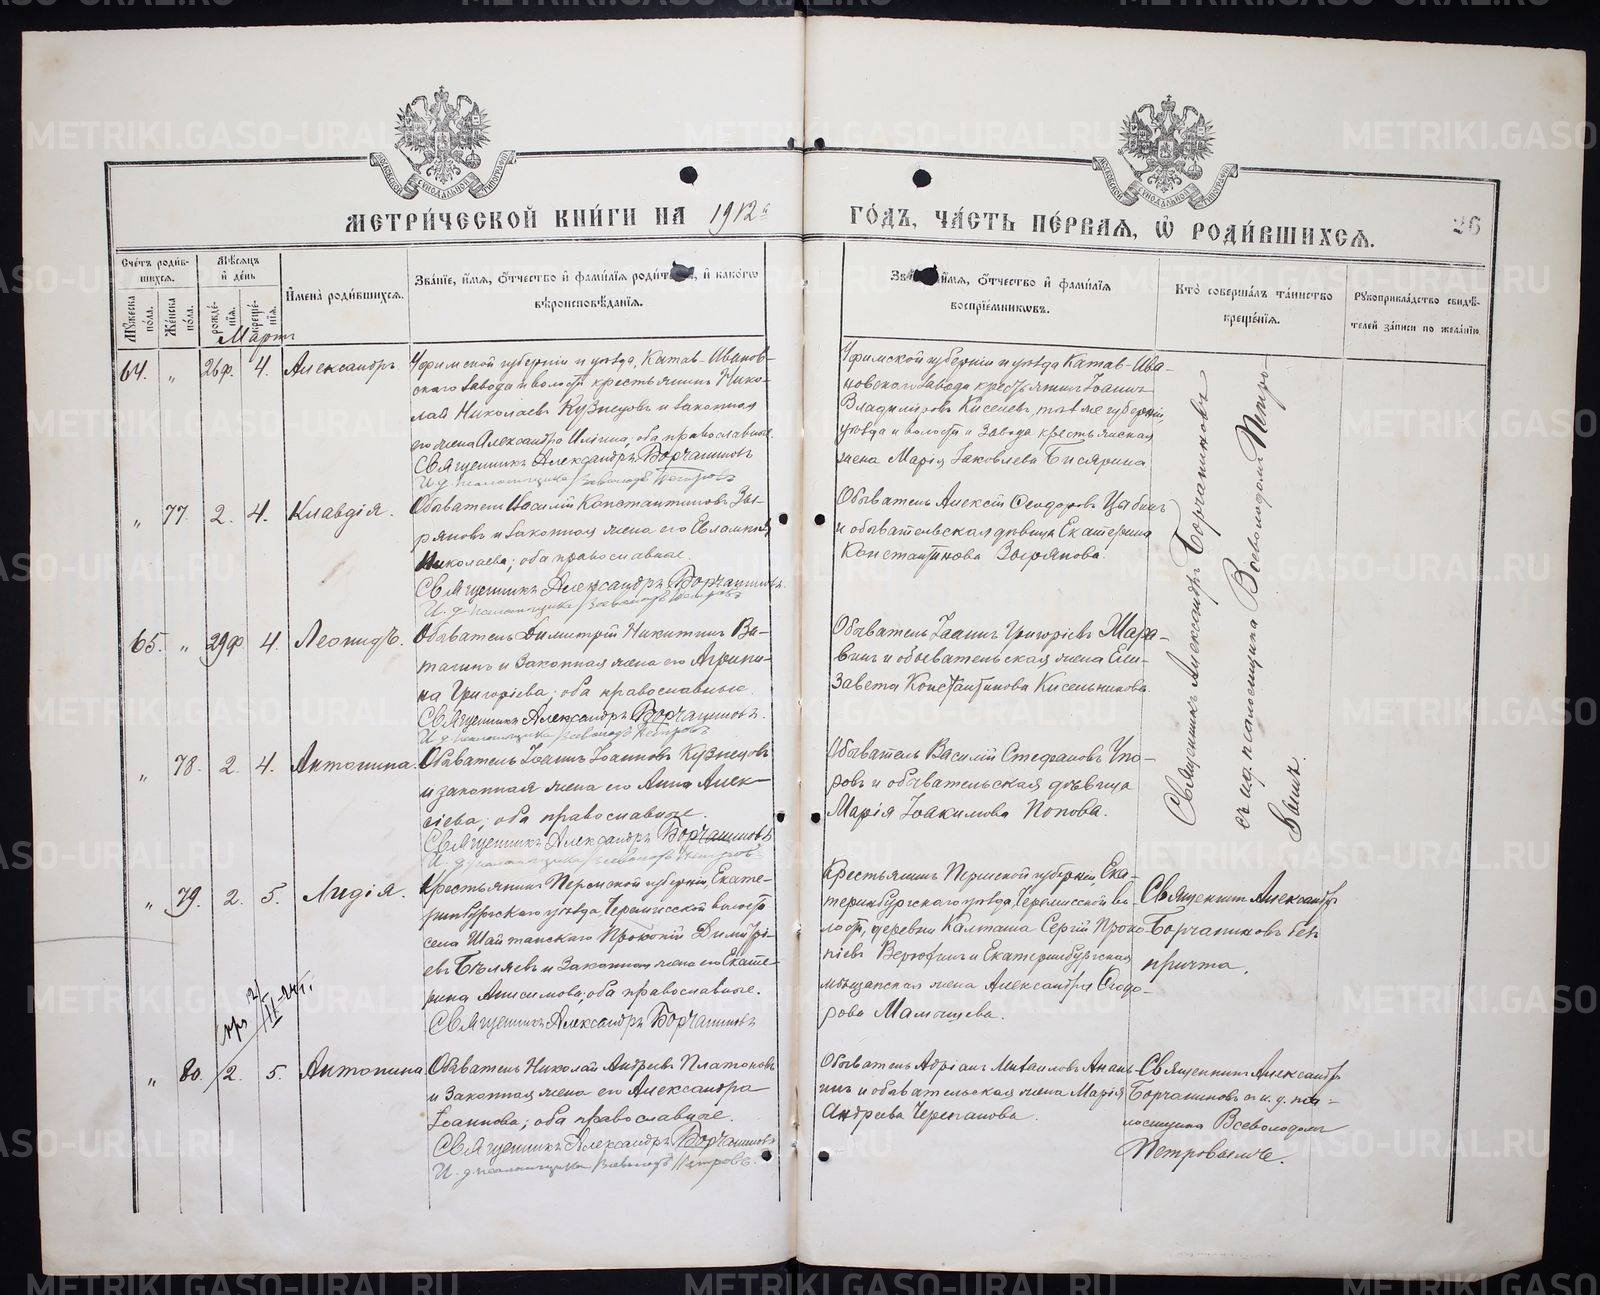 METRIKI.GASO-URAL.RU
МОСКОВСКОЙ СѴНОДАЛЬНОЙ ТИПОГРАФІИ
МОСКОВСКОЙ СѴНОДАЛЬНОЙ ТИПОГРАФІИ
МЕТРИ́ЧЕСКОЙ КНИ́ГИ НА 1912й
ГО́ДЪ, ЧА́СТЬ ПЕ́РВАЯ, Ѡ РОДИ́ВШИХСЯ.
26
Сче́тъ роди́вшихся.
Му́жеска по́ла.
Же́нска по́ла.
Мѣ́сяцъ и де́нь
рожде́нія.
креще́нія.
Имена̀ роди́вшихся.
Зва́ніе, и́мя, о́тчество и фами́лія роди́т, и како́гѡ
вѣроисповѣ́данія.
и́мя, о́тчество и фами́лія
воспріе́мниковъ.
Кто̀ соверша́лъ та́инство
креще́нія.
Рукоприкла́дство свидѣ́-
телей за́писи по жела́нію.
Мартъ
64. " 26ф. 4. Александръ.
Уфимской губерніи и уѣзда, Катавъ-Иванов-
скаго Завода и волости крестьянинъ Нико-
лай Николаевъ Кузнецовъ и законная
его жена Александра Ильина; оба православные.
Священникъ Александръ Борчаниновъ
И. д. псаломщика Всеволодъ Петровъ
Уфимской губерніи и уѣзда Катавъ-Ива-
новскаго Завода крестьянинъ Іоаннъ
Владиміровъ Киселевъ, той же губерніи,
уѣзда и волости и Завода крестьянская
жена Марія Іаковлева Бисярина
" 77. 2. 4. Клавдія.
Обыватель Василій Константиновъ Зы-
ряновъ и законная жена его Евлампія
Николаева; оба православные.
Священникъ Александръ Борчаниновъ.
И. д. псаломщика Всеволодъ Петровъ
Обыватель Алексій Ѳеодоровъ Цыбинъ
и обывательская дѣвица Екатерина
Константинова Зырянова.
65. " 29ф 4. Леонидъ.
Обыватель Димитрій Никитинъ Ва-
тагинъ и законная жена его Агрипи-
на Григоріева; оба православные.
Священникъ Александръ Борчаниновъ.
И. д. псаломщика Всеволодъ Петровъ
Обыватель Іоаннъ Григоріевъ Шара-
винъ и обывательская жена Ели-
завета Константинова Кисельникова.
" 78. 2. 4. Антонина.
Обыватель Іоаннъ Іоанновъ Кузнецовъ
и законная жена его Анна Алек-
сіева; оба православные.
Священникъ Александръ Борчаниновъ
И. д. псаломщика Всеволодъ Петровъ
Обыватель Василій Стефановъ Упо-
ровъ и обывательская дѣвица
Марія Іоакимова Попова.
Священникъ Александръ Борчаниновъ
съ и.д. псаломщика Всеволодомъ Петро-
вымъ.
" 79. 2. 5. Лидія.
Крестьянинъ Пермской губерніи, Екате-
ринбургскаго уѣзда, Черемисской волости
села Шайтанскаго Прокопій Димитрі-
евъ Бѣляевъ и законная жена его Екате-
рина Анисимова; оба православные.
Священникъ Александръ Борчаниновъ
Крестьянинъ Пермской губерніи, Ека-
теринбургскаго уѣзда, Черемисской во-
лости, деревни Калташа Сергій Проко-
піевъ и Екатеринбургская
мѣщанская жена Александра Ѳеодо-
рова Мамышева.
Священникъ Александръ
Борчаниновъ безъ
причта.
" 80. 2. 5. Антонина
Обыватель Николай Андреевъ Платоновъ
и законная жена его Александра
Іоаннова; оба православные.
Священникъ Александръ Борчаниновъ
И. д. псаломщика Всеволодъ Петровъ.
Обыватель Адріанъ Михаиловъ Анань-
инъ и обывательская жена Марія
Андреева Черепанова.
Священникъ Александръ
Борчаниновъ съ и. д. пса-
ломщика Всеволодомъ
Петровымъ.